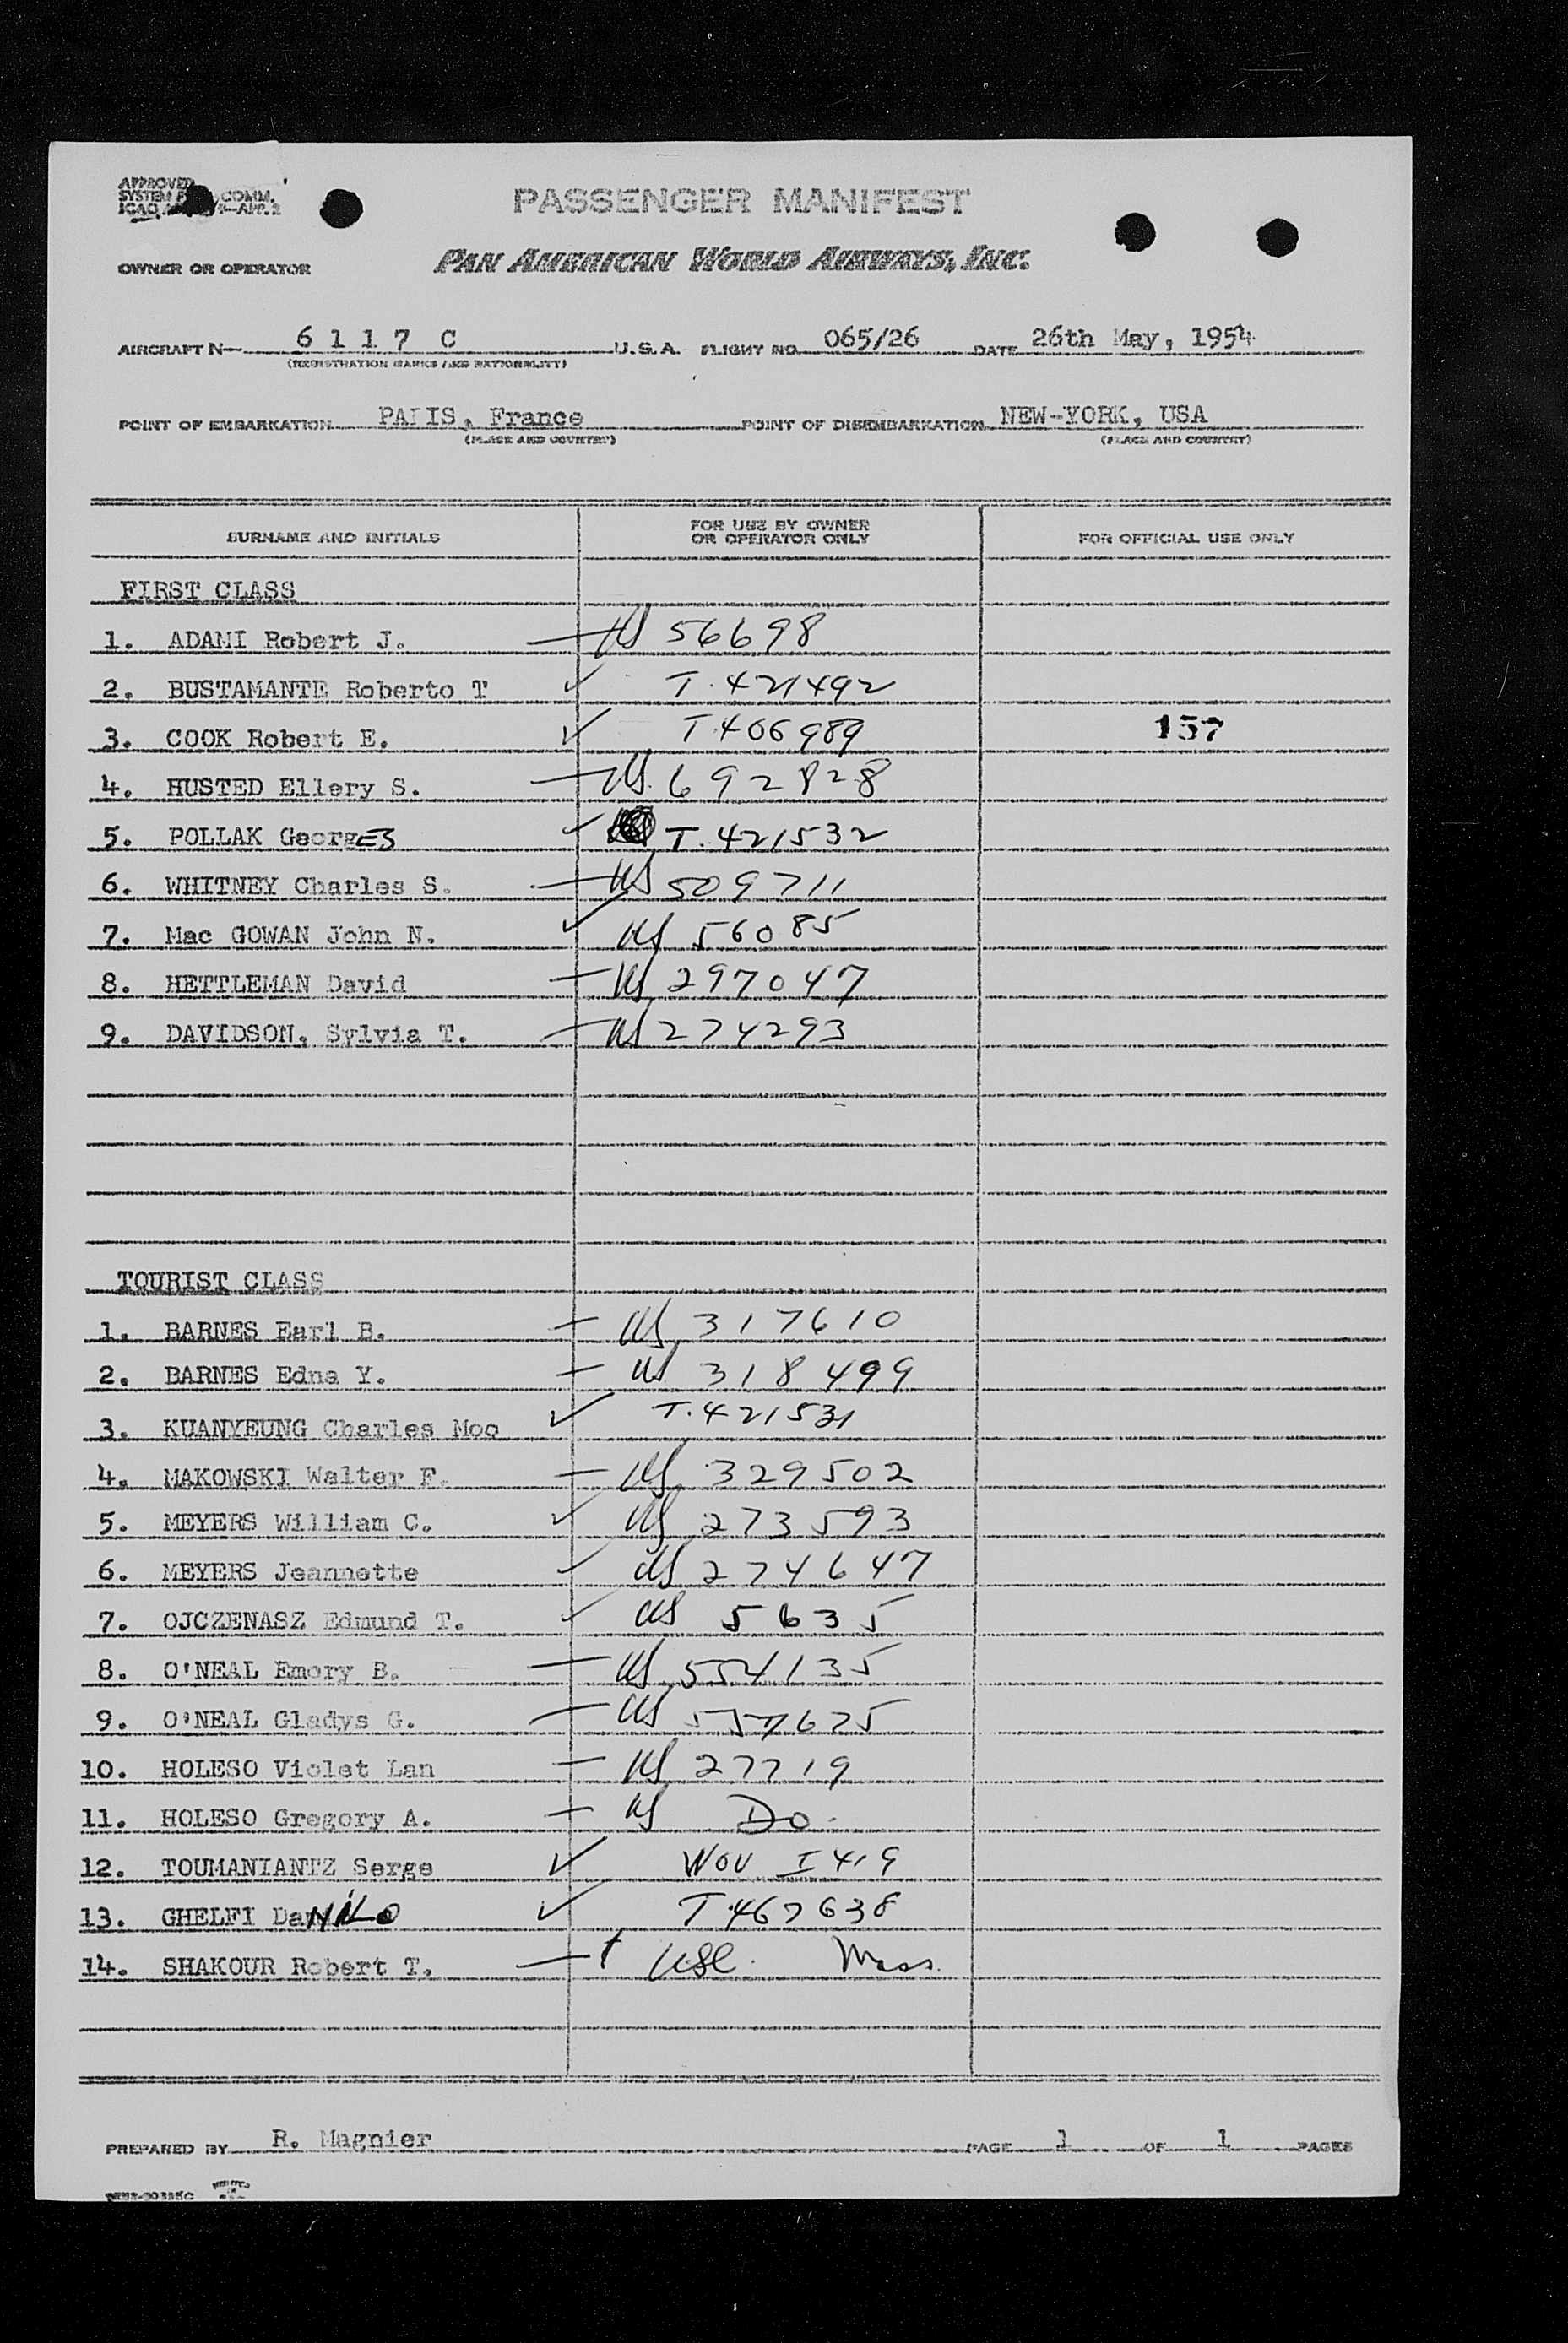 APPROVED
SYSTEM COMM.
ICAO APP. 2
PASSENGER MANIFEST
OWNER OR OPERATOR PAN AMERICAN WORLD AIRWAYS, INC.
AIRCRAFT N— 6 1 1 7 C U.S.A. FLIGHT NO. 065/26 DATE 26th May, 1954
(REGISTRATION MARKS AND NATIONALITY)
POINT OF EMBARKATION PARIS, France POINT OF DISEMBARKATION NEW-YORK, USA
(PLACE AND COUNTRY) (PLACE AND COUNTRY)
SURNAME AND INITIALS FOR USE BY OWNER OR OPERATOR ONLY FOR OFFICIAL USE ONLY
FIRST CLASS
1. ADAMI Robert J. US 56698
2. BUSTAMANTE Roberto T T. 421492
3. COOK Robert E. T.406989 157
4. HUSTED Ellery S. US. 692828
5. POLLAK GeorgES T. 421532
6. WHITNEY Charles S. US 509711
7. Mac GOWAN John N. US 56085
8. HETTLEMAN David US 297047
9. DAVIDSON, Sylvia T. US 274293
TOURIST CLASS
1. BARNES Earl B. US 317610
2. BARNES Edna Y. US 318499
3. KUANYEUNG Charles Moo T.421531
4. MAKOWSKI Walter F. US 329502
5. MEYERS William C. US 273593
6. MEYERS Jeannette US 274647
7. OJCZENASZ Edmund T. US 5635
8. O'NEAL Emory B. US 554135
9. O'NEAL Gladys G. US 557675
10. HOLESO Violet Lan US 27719
11. HOLESO Gregory A. US Do.
12. TOUMANIANTZ Serge WOU I 419
13. GHELFI DaNiLO T.467638
14. SHAKOUR Robert T. USC. Mass.
PREPARED BY R. Magnier PAGE 1 OF 1 PAGES